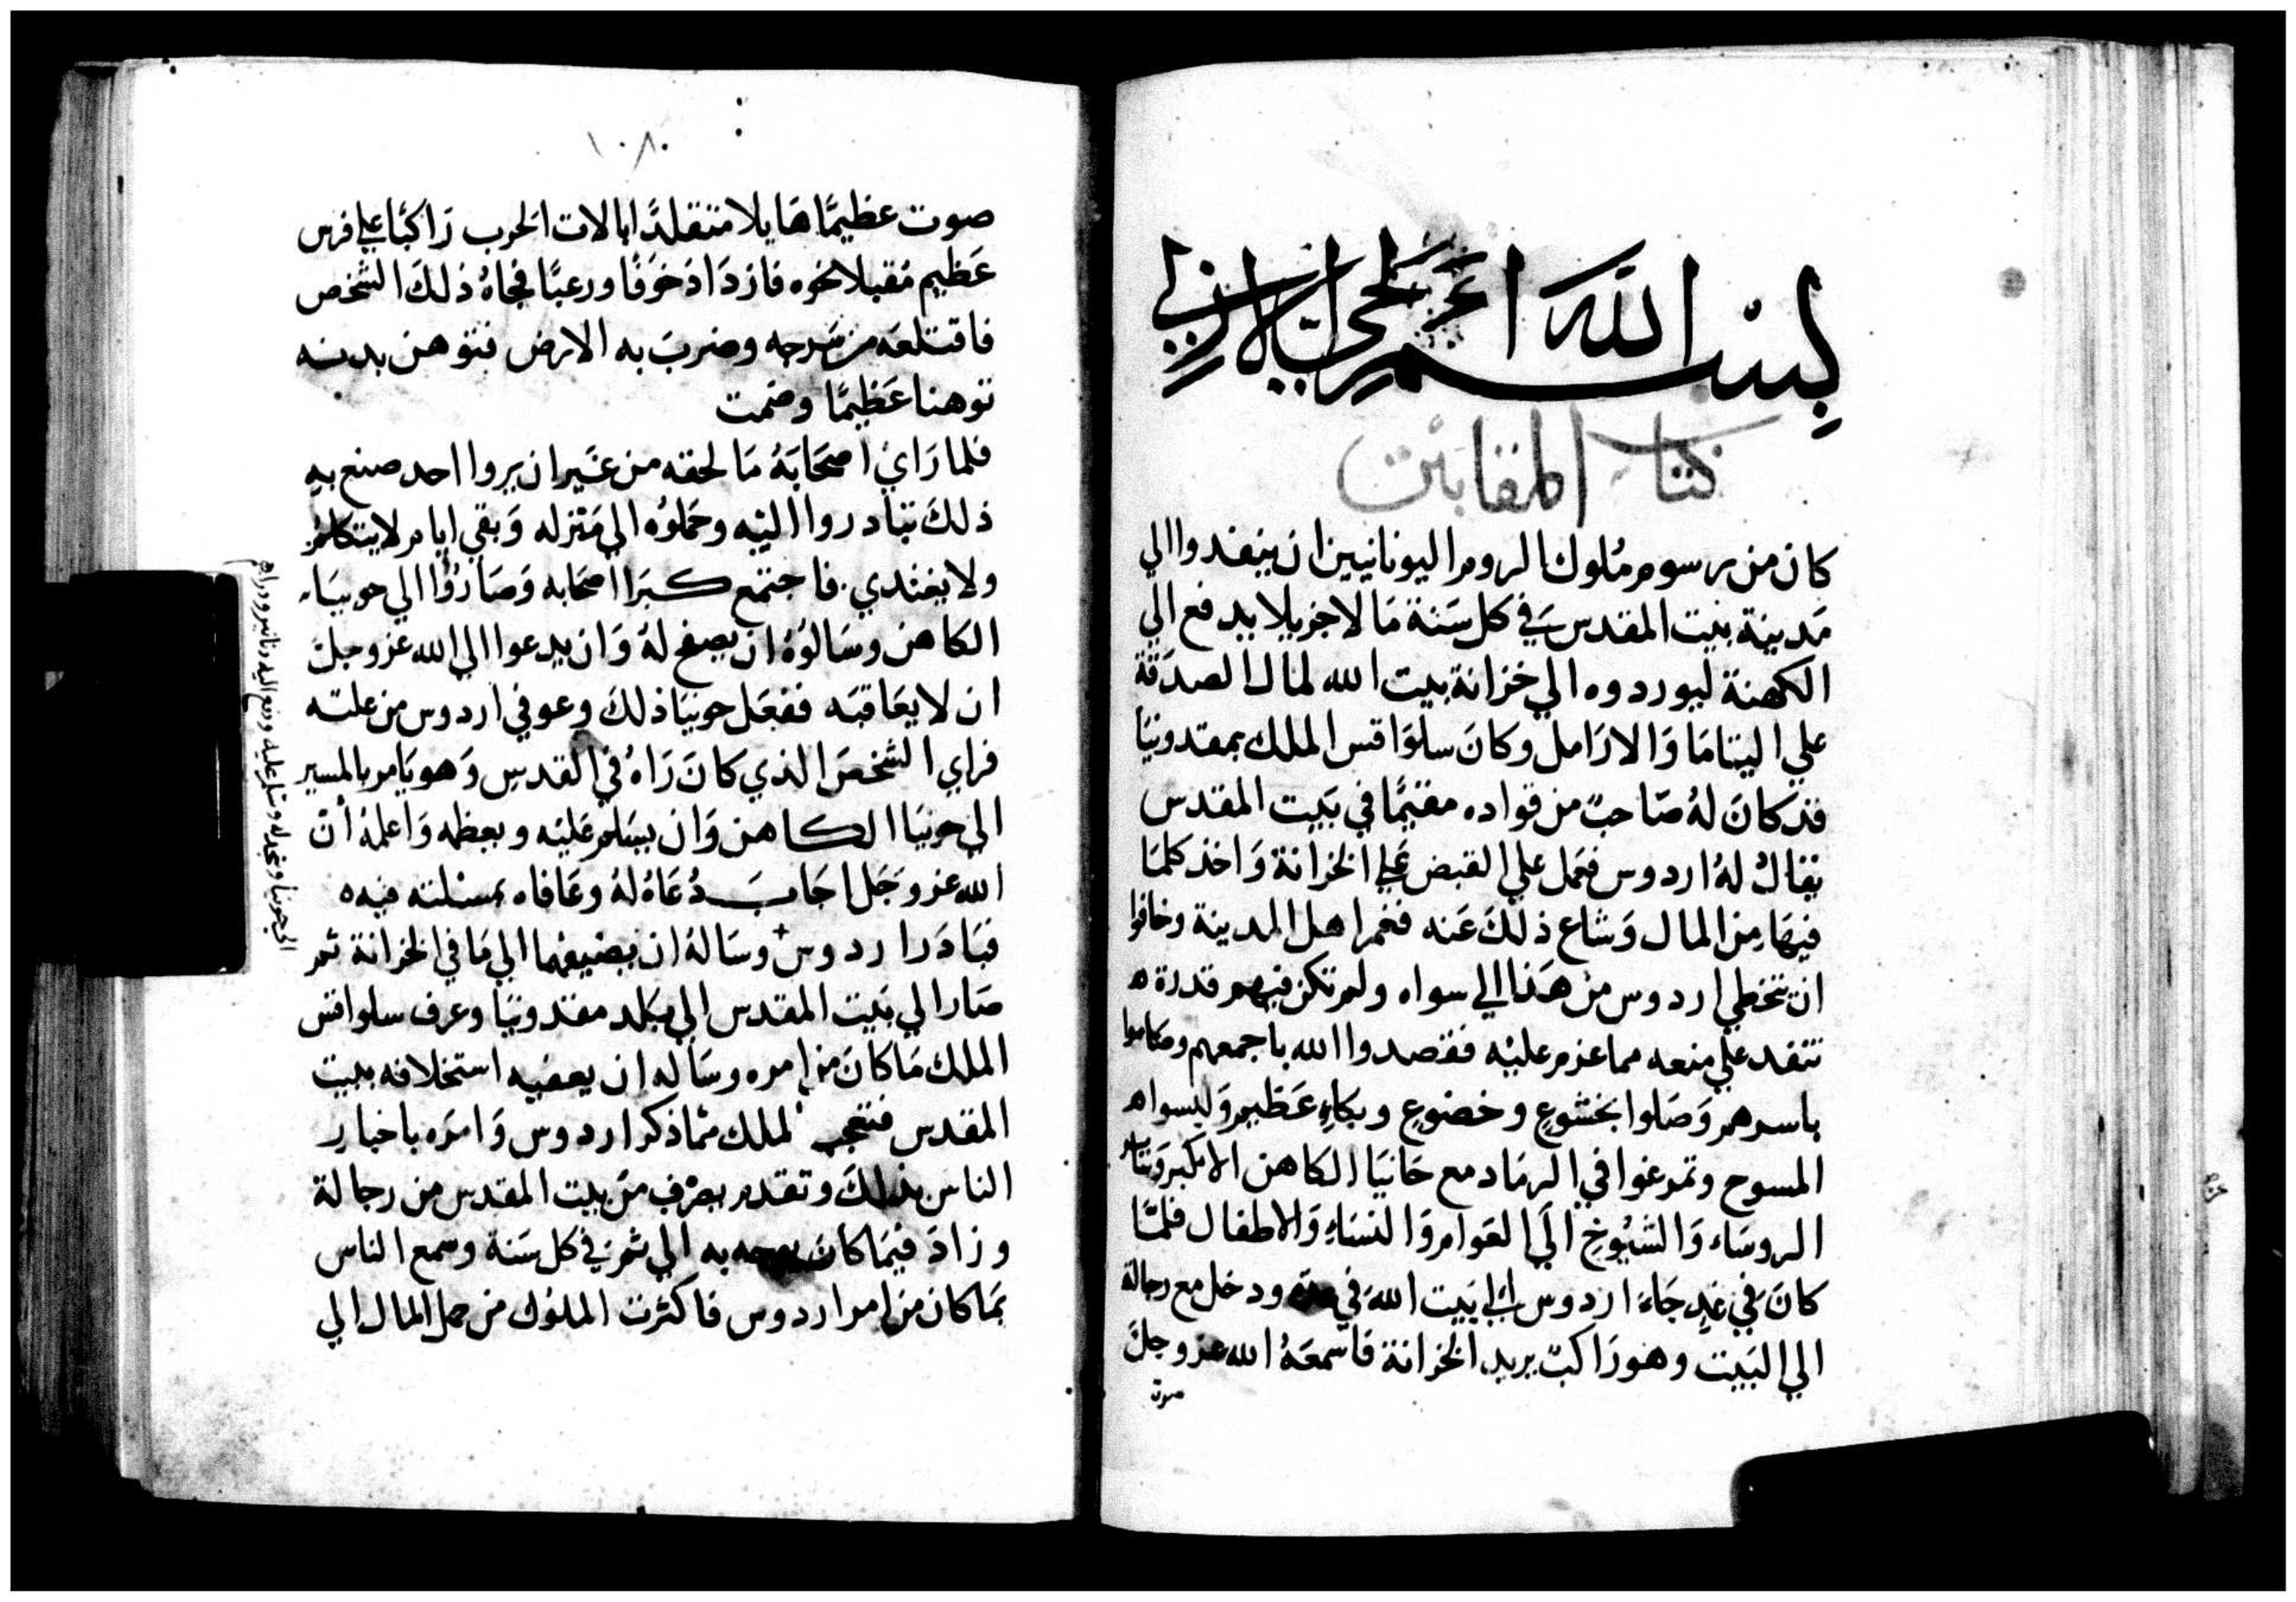 بسم الله الحي الازلي
كتاب المقابين
كان من رسوم ملوك الروم اليونانيين ان ينفدوا الي
مَدينة بيت المقدس في كل سَنة مَالا جزيلا يدفع الي
الكهنة ليوردوه الي خزانة بيت الله لمال الصدَقة
علي اليتامَا وَالارَامل وكانَ سلوَاقس الملك بمقدونيَا
قد كانَ لهُ صَاحبٌ من قواده مقيمًا في بَيت المقدس
يقالُ لهُ اردوس فحمل علي القبض عَلي الخزانة وَاخذ كلمَا
فيهَا مِن المال وَشاع ذلكَ عَنه فغم اهل المدينة وخافوا
ان يتخطي اردوس مِن هَذا الي سواه ولم تكن فيهم قدرة ه
تنفد علي منعه مما عزم عليْه فقصدوا الله باجمعهم وصاموا
باسرهم وَصَلوا بخشوعٍ وخضوعٍ وبكاءٍ عَظيم وَلبسوا ه
المسوح وتمرغوا في الرمَاد مع حَانيَا الكاهن الاكبر وَسَاير
الروسَاء وَالشيُوخ الَي العَوام وَالنسَاءِ وَالاطفال فلمَّا
كانَ في غدٍ جَاءَ اردوس الي بَيت الله في ودخل مع رجالة
الي البَيت وهو رَاكبٌ يريد الخزانة فَاسمعَهُ الله عز وجلَ
صوت
١٠٨٠
صوت عظيمًا هَايلا متقلدًا بالات الحَرب رَاكبًا علي فرس
عَظيم مُقبلا نحوه فازدَادَ خوَفًا ورعبًا فجاهُ ذلكَ الشخص
فاقتلعَه من سَرجه وضربَ به الارض فتوهن بدنه
توهنا عَظيمًا وصمت
فلما رَايَ اصحَابَهُ مَا لحقه من غَير ان يروا احد صنع به
ذلكَ تبادروا اليْه وحَملوُه الي مَنزله وَبقي ايام لا يتكلم
ولا يغتدي فاجتمع كبرَا اصحَابه وَصَارُوا الي حونيَا
الكاهن وسَالوُهُ ان يصفح لهُ وَان يدعوا الي الله عز وجلَ
ان لا يعَاقبَه ففعَل حونيَا ذلكَ وعوفي اردوس من علته
فراي الشخصَ الذي كانَ رَاهُ في القدس وَهو يَامر بالمسير
الي حونيَا الكاهن وَان يسَلم عَليْه ويعظمه وَاعلمهُ أن
الله عز وَجَل اجَابَ دُعَاهُ لهُ وعَافاه بمسئلته فيه ه
فبَادَر اردوس+ وسَالهُ ان يضيفهما الي مَا في الخزانة ثم
صَار الي بَيت المقدس الي بَلد مقدونيَا وعرف سلواقس
الملك مَا كانَ من امره وسَاله ان يعفيه استخلافه ببيت
المقدس فتعجب الملك ممَّا ذكر اردوس وَامرَه باخبار
الناس بذلكَ وتقدم بصَرْف مَن ببيت المقدس من رجالة
وزادَ فيمَا كانَ يوجه به الي ثم في كل سَنة وسمع الناس
بمَا كان من امر اردوس فاكثرت الملوك من حمل المال الي
الي حونيا وسجد له وسلم عليه ودفع اليه دنانير ودراهم